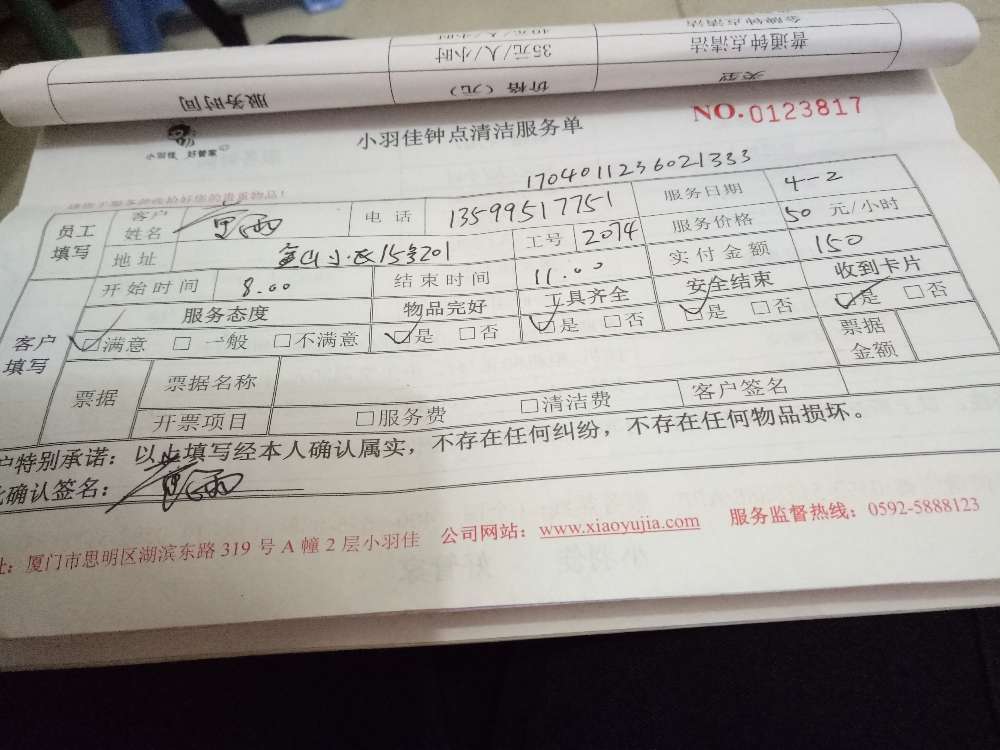 金牌钟点清洁 40元/人/小时
普通钟点清洁 35元/人/小时
类型 价格（元） 服务时间
NO.0123817
小羽佳 好管家
小羽佳钟点清洁服务单
1704011236021333
员工填写 客户姓名 电话 13599517751 服务日期 4-2
地址 金山小区15号201 工号 2074 服务价格 50 元/小时
客户填写 开始时间 8.00 结束时间 11.00 实付金额 150
服务态度 物品完好 工具齐全 安全结束 收到卡片
☑满意 □一般 □不满意 ☑是 □否 ☑是 □否 ☑是 □否 ☑是 □否
票据 票据名称 票据金额
开票项目 □服务费 □清洁费 客户签名
户特别承诺：以上填写经本人确认属实，不存在任何纠纷，不存在任何物品损坏。
确认签名：
址：厦门市思明区湖滨东路 319 号 A 幢 2 层小羽佳 公司网站：www.xiaoyujia.com 服务监督热线：0592-5888123